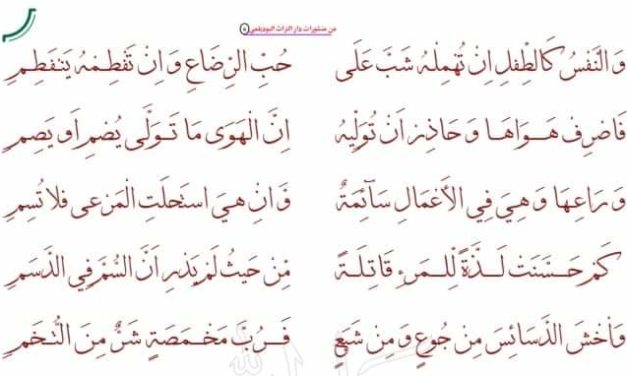 من منشورات دار التراث البوديلمي ٥
وَالنَّفْسُ كَالطِّفْلِ اِنْ تُهْمِلْهُ شَبَّ عَلَى حُبِّ الرَّضَاعِ وَاِنْ تَفْطِمْهُ يَنْفَطِمِ
فَاصْرِفْ هَوَاهَا وَحَاذِرْ اَنْ تُوَلِّيَهُ اِنَّ الْهَوَى مَا تَوَلَّى يُصْمِ اَوْ يَصِمِ
وَرَاعِهَا وَهِيَ فِي الْأَعْمَالِ سَآئِمَةٌ وَاِنْ هِيَ اسْتَحْلَتِ الْمَرْعَى فَلَا تُسِمِ
كَمْ حَسَّنَتْ لَذَّةً لِلْمَرْءِ قَاتِلَةً مِنْ حَيْثُ لَمْ يَدْرِ اَنَّ السُّمَّ فِي الدَّسَمِ
وَاخْشَ الدَّسَائِسَ مِنْ جُوعٍ وَمِنْ شَبَعٍ فَرُبَّ مَخْمَصَةٍ شَرٌّ مِنَ التُّخَمِ